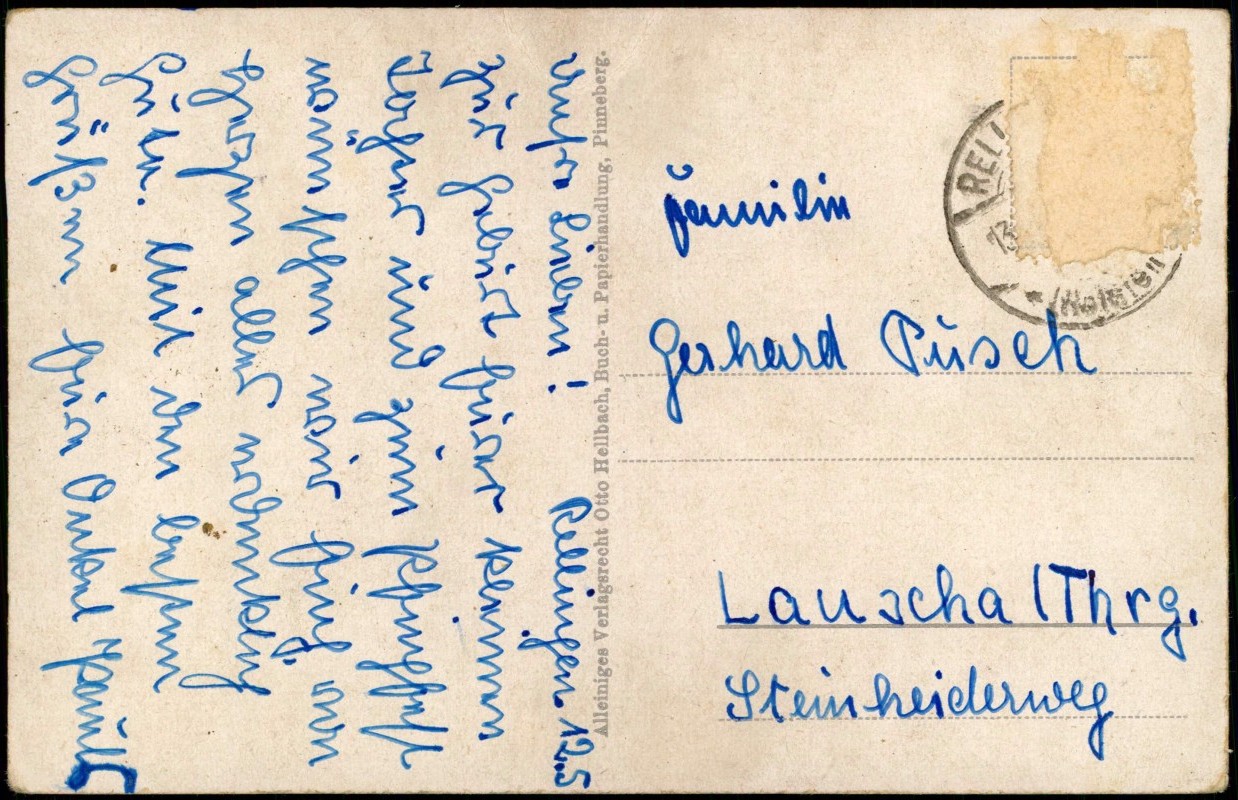 Unsre Lieben! Rellingen. 12.5
Zur Geburt Eurer kleinen
Tochter und zum Pfingstfest
wünschen wir Euch von
Herzen alles erdenklich
Gute. Mit den besten
Grüßen Eure Onkel Pauls
Alleiniges Verlagsrecht Otto Hellbach, Buch- u. Papierhandlung, Pinneberg.
RELLI
13
(Holstein)
Familie
Gerhard Pusch
Lauscha /Thrg.
Steinheiderweg